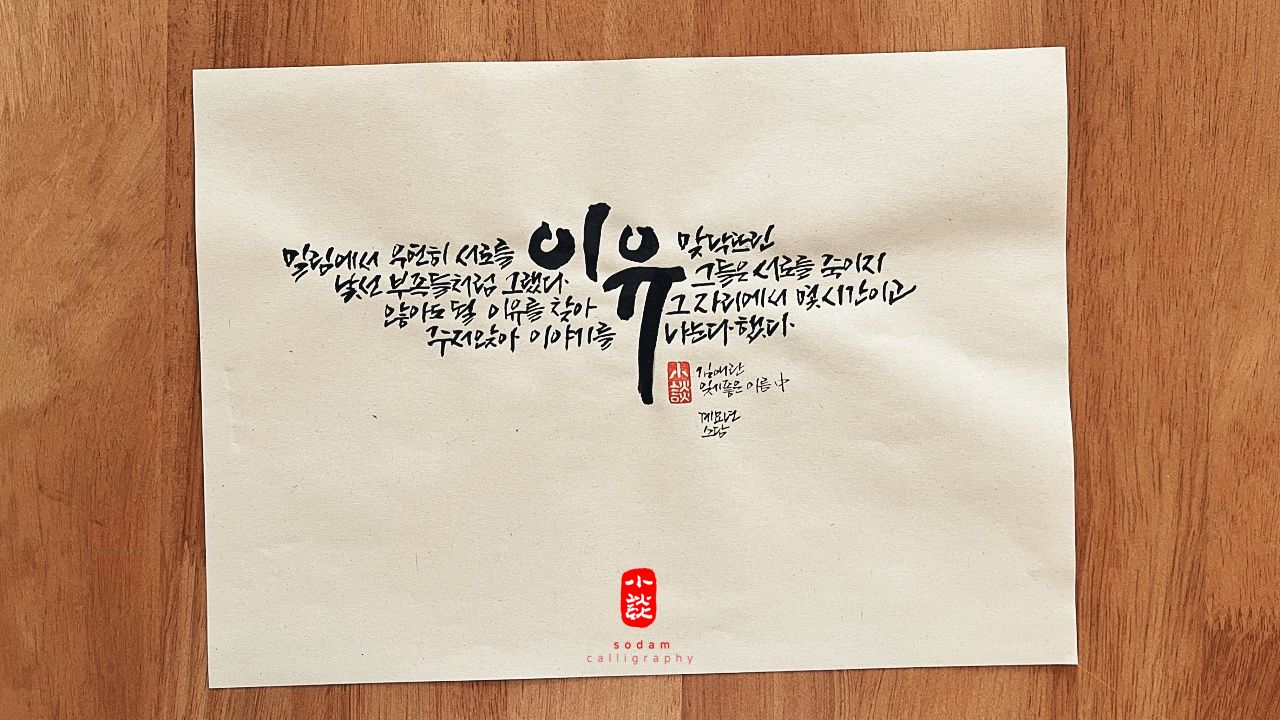 이유
밀림에서 우연히 서로를 맞닥뜨린
낯선 부족들처럼 그랬다. 그들은 서로를 죽이지
않아도 될 이유를 찾아 그 자리에서 몇 시간이고
주저앉아 이야기를 나눈다 했다.
小談
김애란
잊기좋은 이름 中
계묘년
소담
小談
sodam
calligraphy